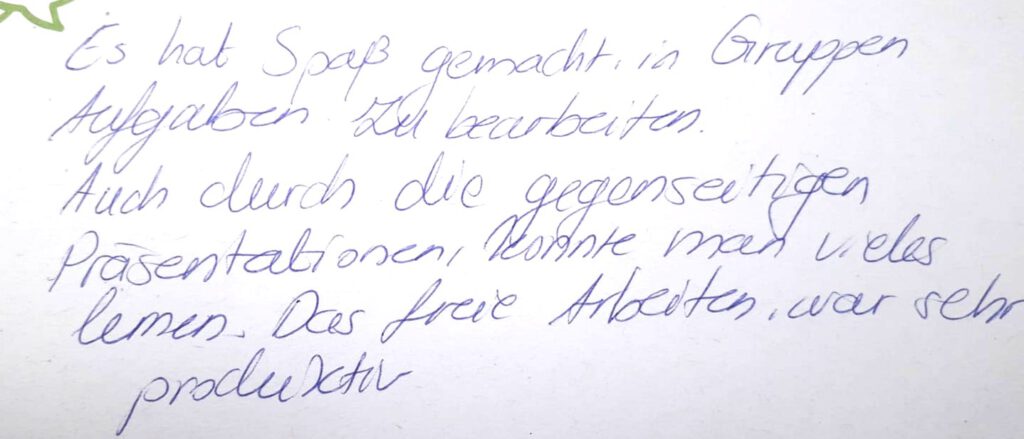 Es hat Spaß gemacht, in Gruppen
Aufgaben zu bearbeiten.
Auch durch die gegenseitigen
Präsentationen, konnte man vieles
lernen. Das freie Arbeiten, war sehr
produktiv